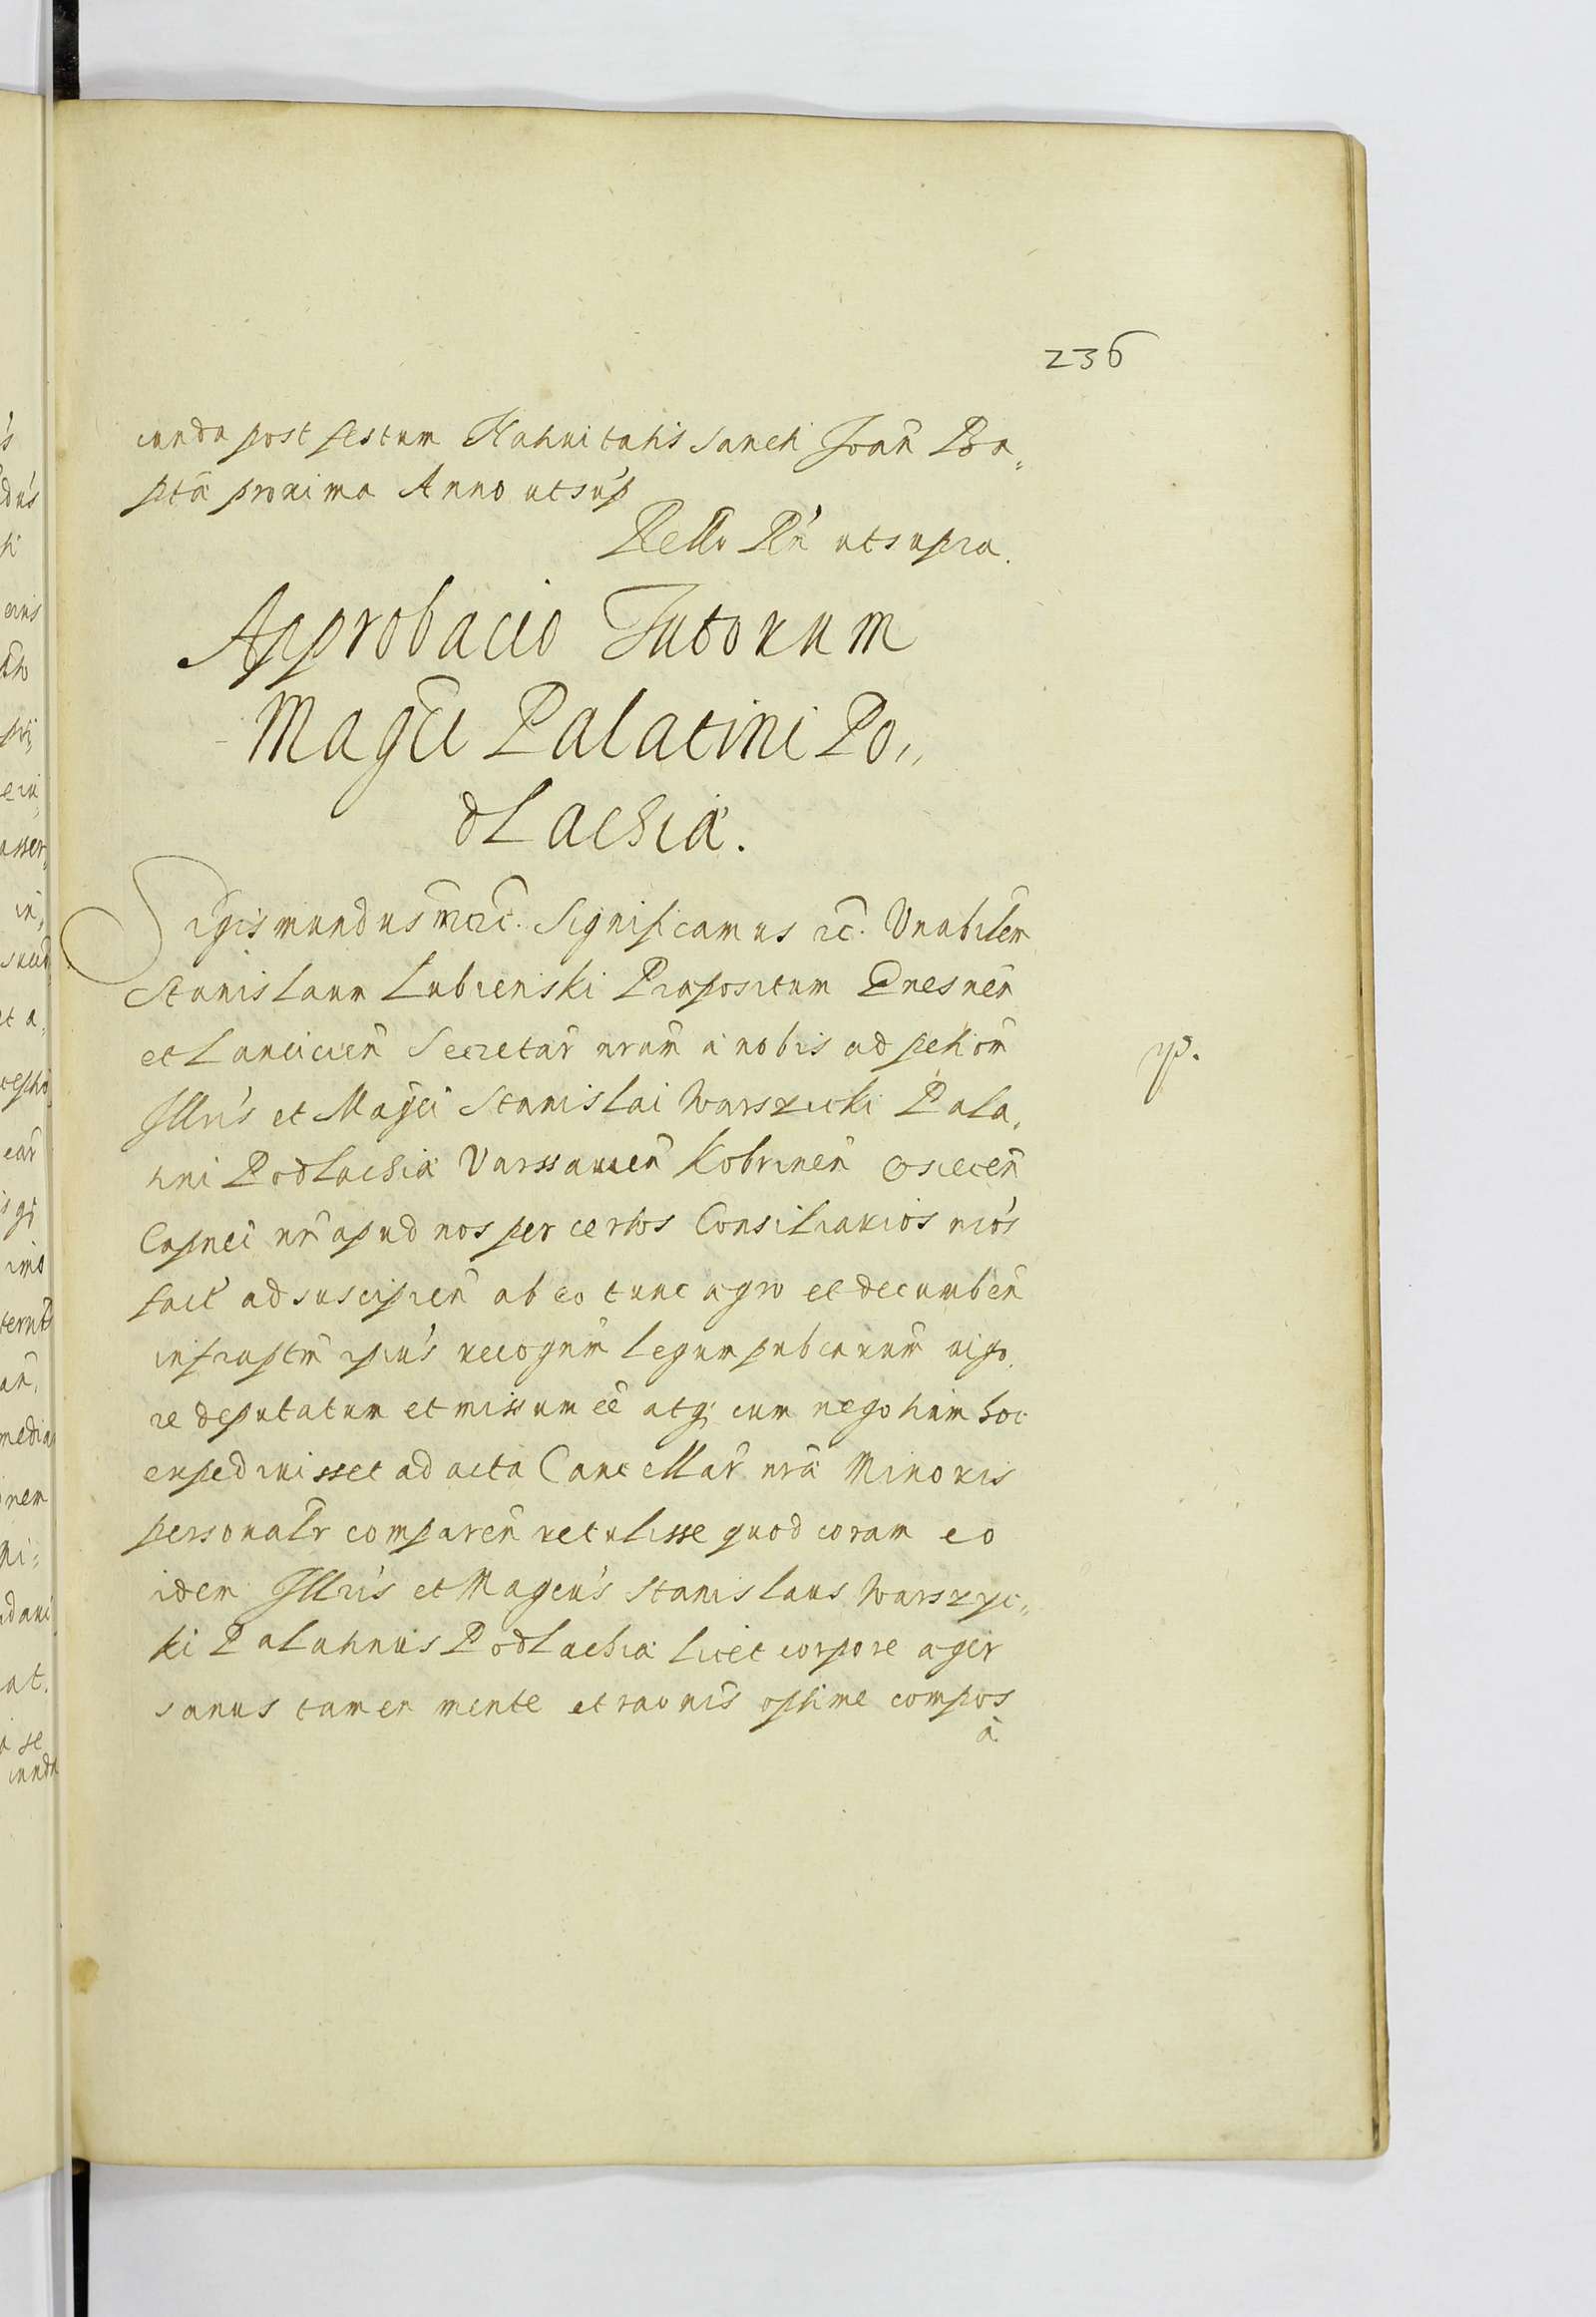 236
cunda post festum Nativitatis Sancti Joan̄ Ba„
ptæ proxima Anno ut sup̄
Rello Rn̄ ut supra.
Approbacio Tutorum
Magc̄i Palatini Po„
dlachiæ.
Sigismundus etc. Significamus etc. Vnabilem̄
Stanislaum Lubienski Præpositum Gnesnen̄
et Lancicien̄ Secretar̄ nrum̄ a nobis ad petiōn
Illris et Magci Stanislai Warszicki Pala„
tini Podlachiæ Varssavien̄ Kobrinen̄ Osiecen̄
Capnei nri apud nos per certos Consiliarios nros
fact̄ ad suscipien̄ ab eo tunc ægro et decumben̄
infraptm̄ ipius recognm̄ legum pubcarum̄ vigo„
re deputatum et missum eē atq; cum negotium hoc
expedivisset ad acta Cancellar̄ nræ Minoris
personalr̄ comparen̄ retulisse quod coram eo
idem Illris et Magcus Stanislaus Warszyc„
ki Palatinus Podlachiæ licet corpore æger
sanus tamen mente et raonis optime compos
a